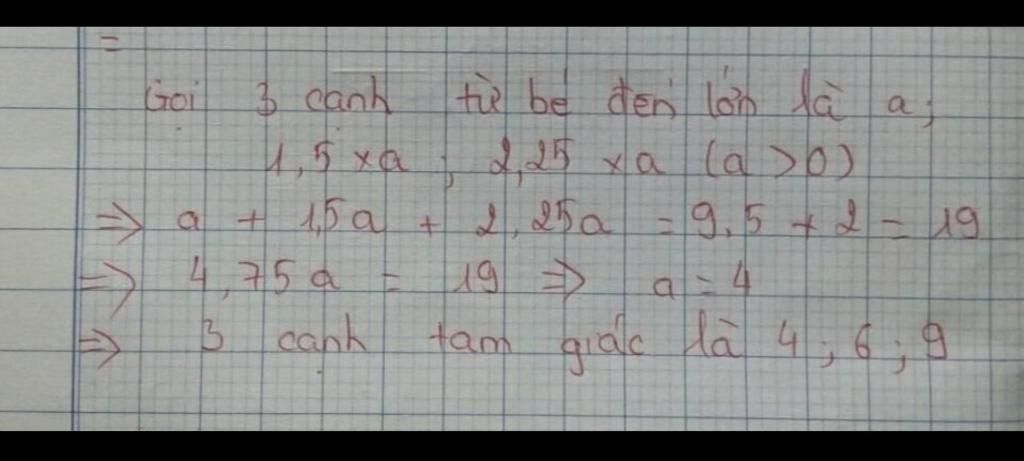 =
Gọi 3 cạnh từ bé đến lớn là a;
1,5 x a ; 2,25 x a (a > 0)
=> a + 1,5a + 2,25a = 9,5 x 2 = 19
=> 4,75a = 19 => a = 4
=> 3 cạnh tam giác là 4 ; 6 ; 9